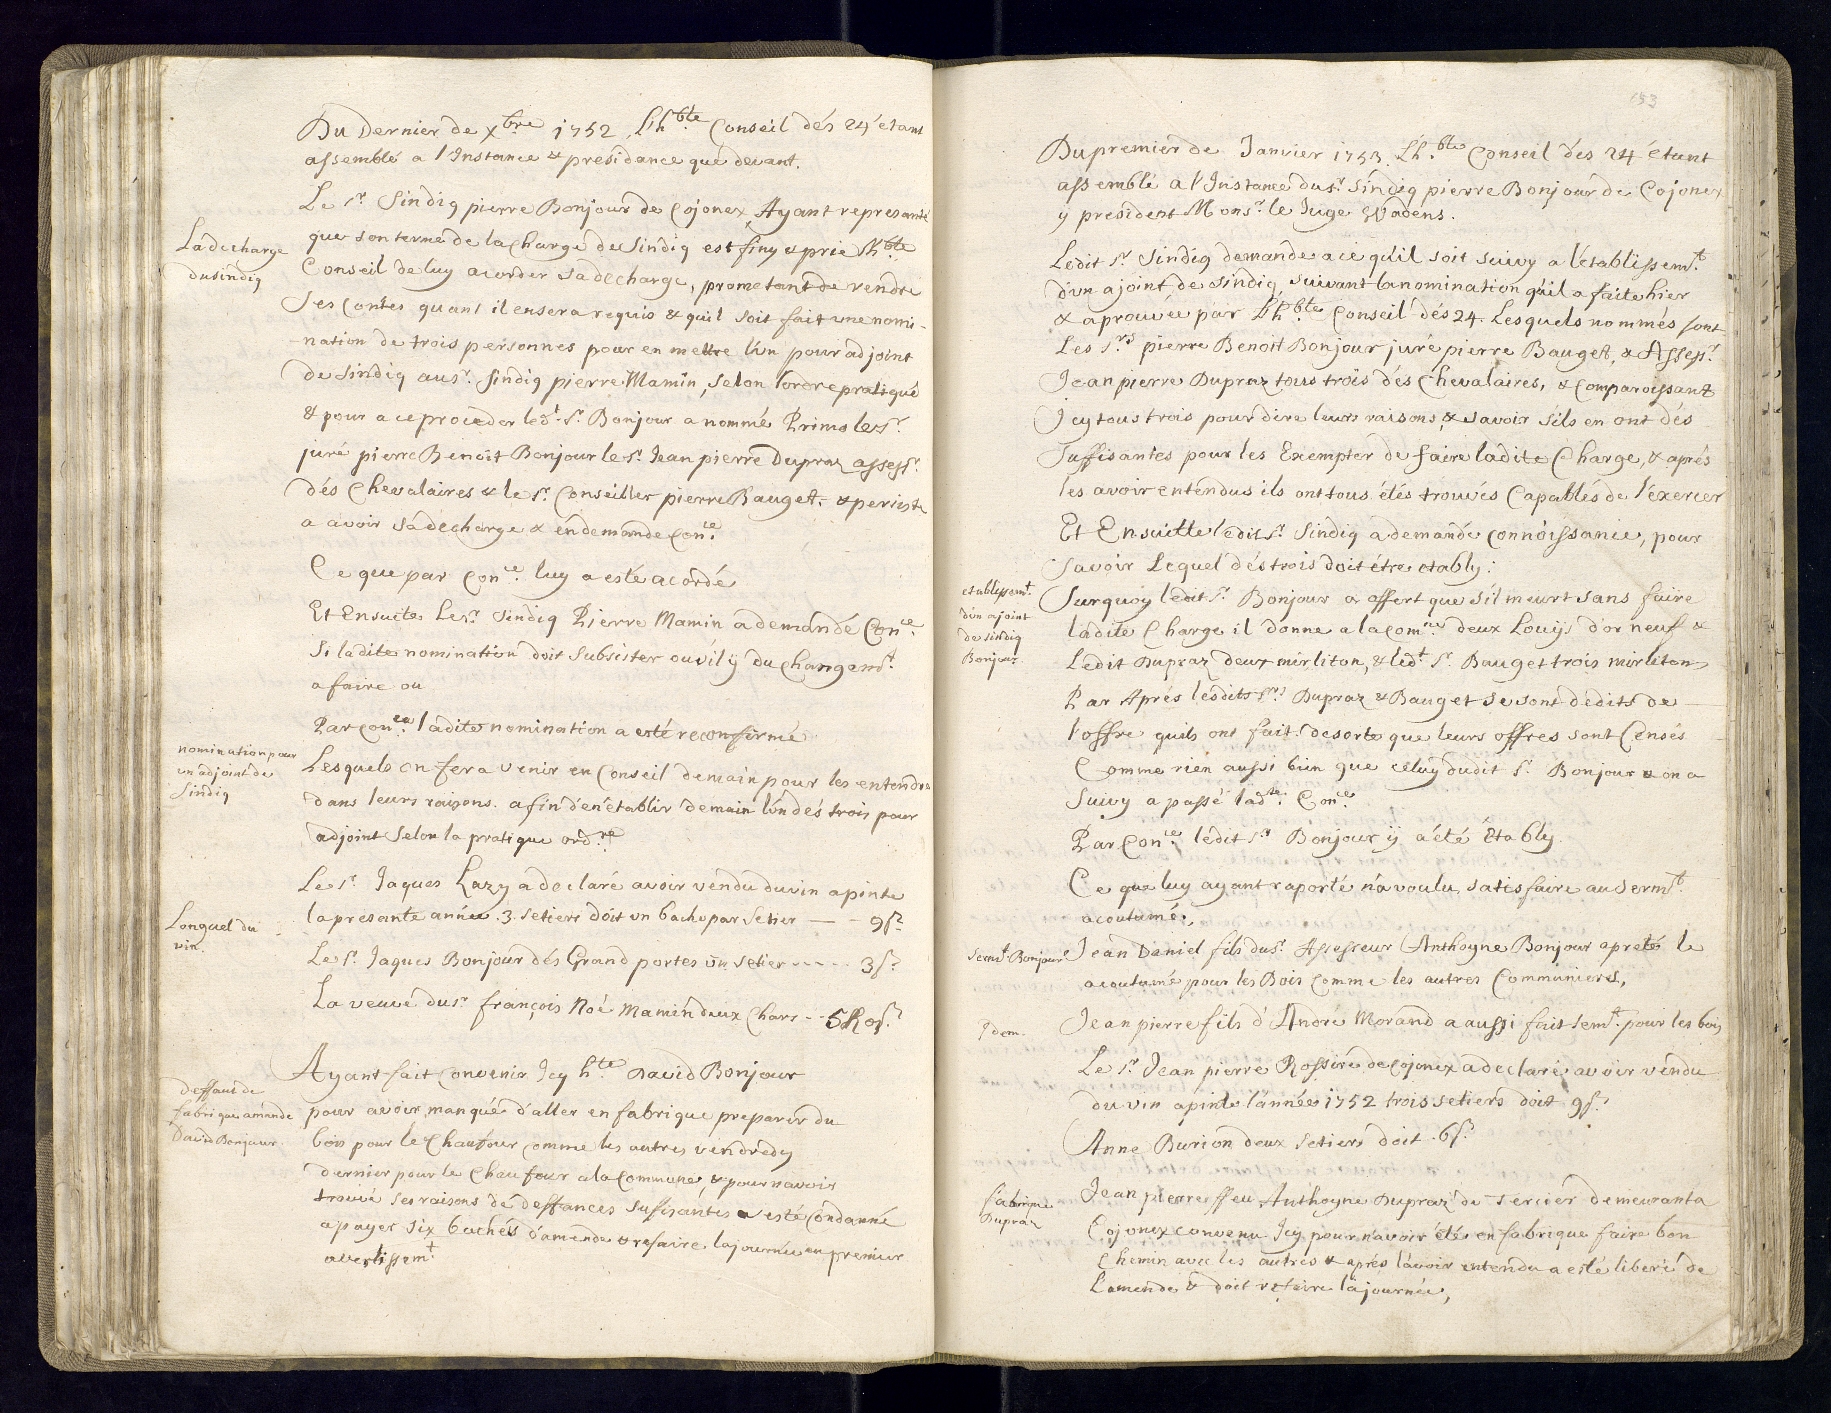 Du Dernier de xbre 1752 Lhble Conseil dés 24 étant
assemblé a l'Instance & présidance que devant.
Le sr Sindiq pierre Bonjour de Cojonex Ayant represanté
que son terme de la Charge de Sindiq est finy & prie lhble
La decharge
du sindiq
Conseil de luy acorder sa decharge, prometant de rendre
ses Contes quant il en sera requis & quil soit fait une nomi-
nation de trois personnes pour en mettre l'un pour adjoint
de sindiq au sr. Sindiq pierre Mamin, selon l'ordre pratiqué
& pour a ce proceder ledt. sr. Bonjour a nommé Primo le sr.
juré pierre Benoit Bonjour le sr. Jean pierre Dupraz assessr.
dés Chevalaires & le sr. Conseiller pierre Bauget. & periste
a avoir sa decharge & en demande Conce.
Ce que par Conce. luy a esté acordé
Et Ensuite Le sr. Sindiq Pierre Mamin a demandé Conce.
Si ladite nomination doit subsister ou s'il ÿ du changemt.
a faire ou
Par Conce. ladite nomination a esté reconfirmé
nomination pour
un adjoint de
Sindiq
Lesquels on fera venir en Conseil demain pour les entendre
dans leurs raisons. afin d'en établir demain l'un dés trois pour
adjoint selon la pratique ordre
Le sr. Jaques Lazy a declaré avoir vendu du vin a pinte
la presante année .3. setiers doit un bachs par setier — - 9s.
Longuel du
vin.
Le sr. Jaques Bonjour dés Grand portes un setier ---- 3s.
La veuve du sr. françois Noé Mamin deux Chars -- 5 R 0s.
Ayant fait convenir Icy hte David Bonjour
deffaut de
fabrique amande
David Bonjour.
pour avoir manqué d'aller en fabrique preparer du
bois pour le Chaufour comme les autres vendredy
dernier pour le Chaufour a la Commune, & pour n'avoir
trouvé ses raisons de deffances sufisantes a esté Condanné
a payer six bachés d'amende & refaire la journée au premier
avertissemt
153
Du premier de Janvier 1753. Lh.ble Conseil des 24 étant
assemblé a l'Instance du sr. Sindiq pierre Bonjour de Cojonex
y president Monsr. le Juge Wadens.
Ledit sr. Sindiq demande a ce qu'il soit suivy a l'établissemt.
d'un ajoint de sindiq, suivant la nomination qu'il a faite hier
& aprouvée par Lhble Conseil dés 24. Lesquels nommés sont
Les srs pierre Benoit Bonjour juré pierre Bauget, & Assessr.
Jean pierre Dupraz tous trois dés Chevalaires, & comparoissant
Icy tous trois pour dire leurs raisons, & savoir s'ils en ont dés
suffisantes pour les Exempter de faire ladite Charge, & aprés
les avoir entendus ils ont tous étés trouvés Capables de l'exercer
Et Ensuitte ledit sr. Sindiq a demandé connoissance, pour
Savoir Lequel dés trois doit étre etably:
etablissemt.
d'un ajoint
de sindiq
Bonjour.
Surquoy ledit sr. Bonjour a offert que s'il meurt sans faire
ladite Charge il donne a la Comne. deux Louijs d'or neuf &
Ledit Dupraz deux mirliton, & ledt sr. Bauget trois mirliton
Par Aprés lesdits srs Dupraz & Bauget se sont dedits de
l'offre quils ont fait. desorte que leurs offres sont Censés
Comme rien aussi bien que celuy dudit sr. Bonjour & on a
Suivy a passé ladte. Conce.
Par Conce ledit sr Bonjour ÿ a été Etably.
Ce que luy ayant raporté n'a voulu satisfaire au Sermt.
acoutumé;
Sermt. Bonjour
Jean Daniel fils du sr. Assesseur Anthoyne Bonjour a preté le
acoutumé pour les Bois Comme les autres Communiers,
Idem.
Jean pierre fils d'André Morand a aussi fait Semt. pour les bois
Le sr Jean pierre Rossire de Cojonex a declaré avoir vendu
du vin a pinte l'année 1752 trois setiers doit 9s.
Anne Burion deux setiers doit .6s.
fabrique
Dupraz
Jean pierre ffeu Anthoyne Dupraz de sercier demeurant a
Cojonex convenu Icy pour n'avoir été en fabrique faire bon
Chemin avec les autres & aprés l'avoir entendu a esté liberé de
Lamende & doit refaire la journée,